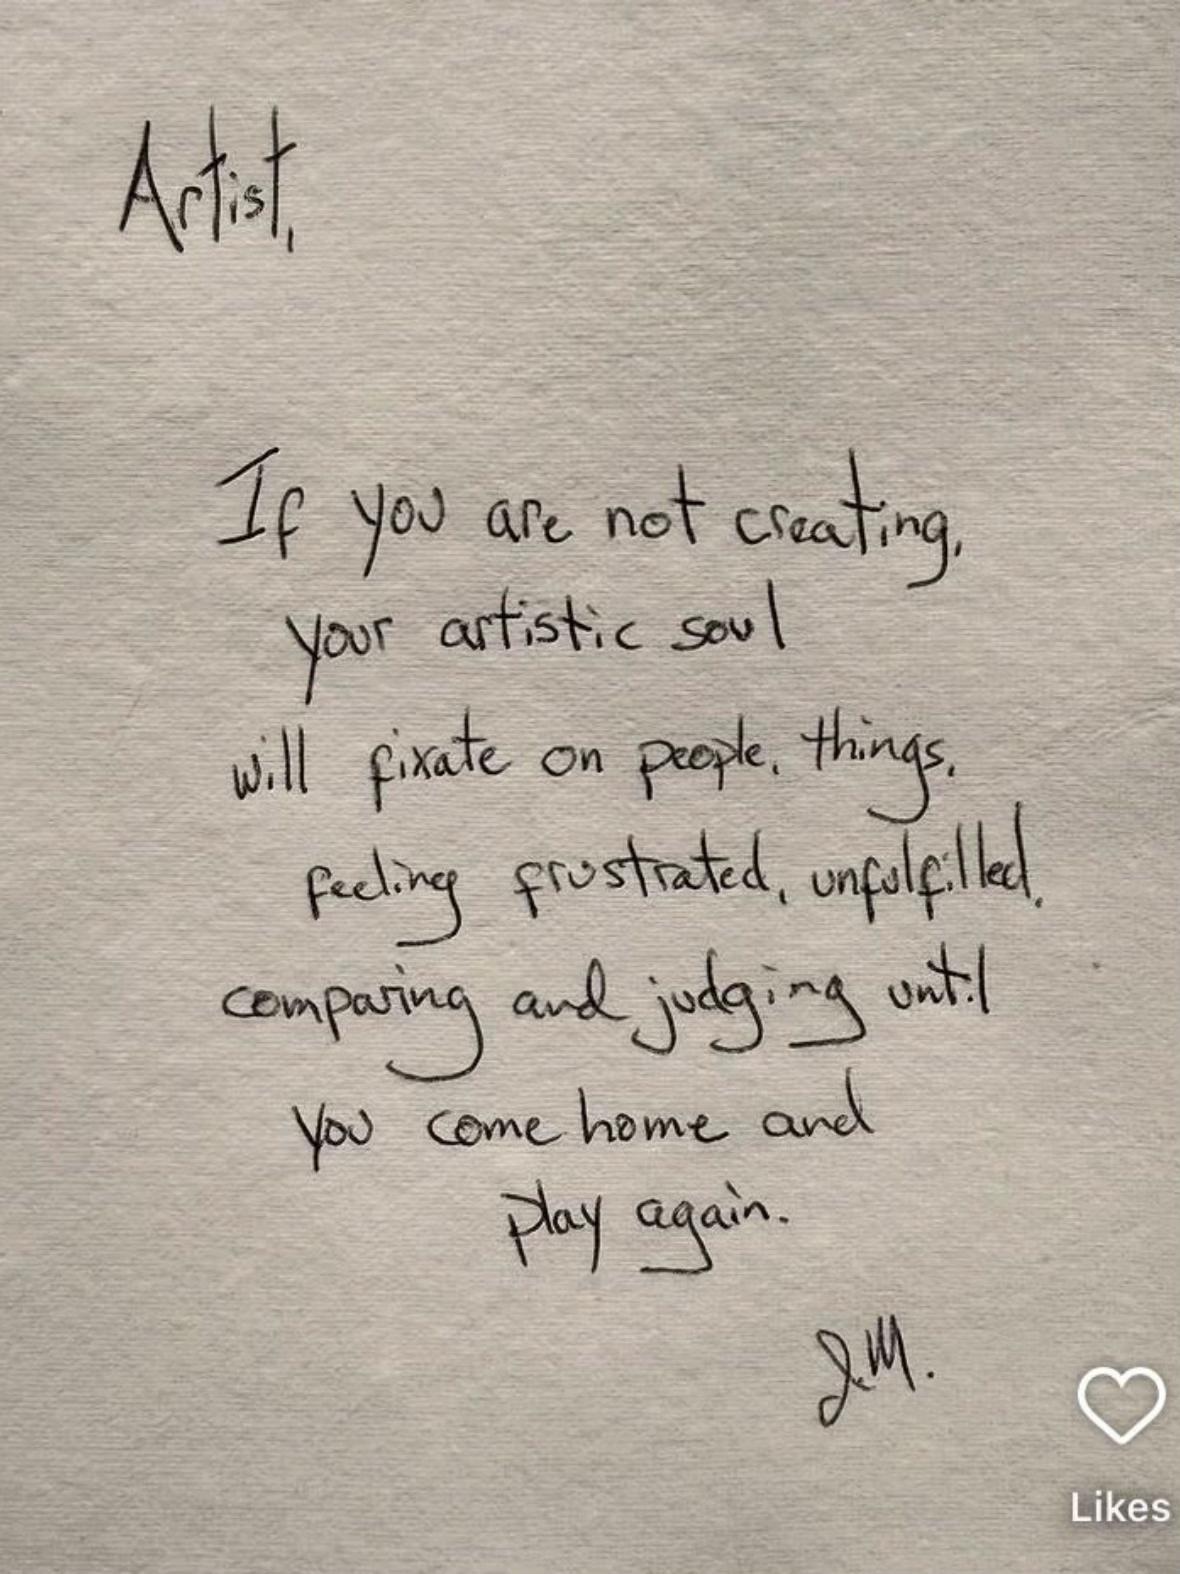 Artist,
If you are not creating,
your artistic soul
will fixate on people, things,
feeling frustrated, unfulfilled,
comparing and judging until
you come home and
play again.
J.M.
Likes